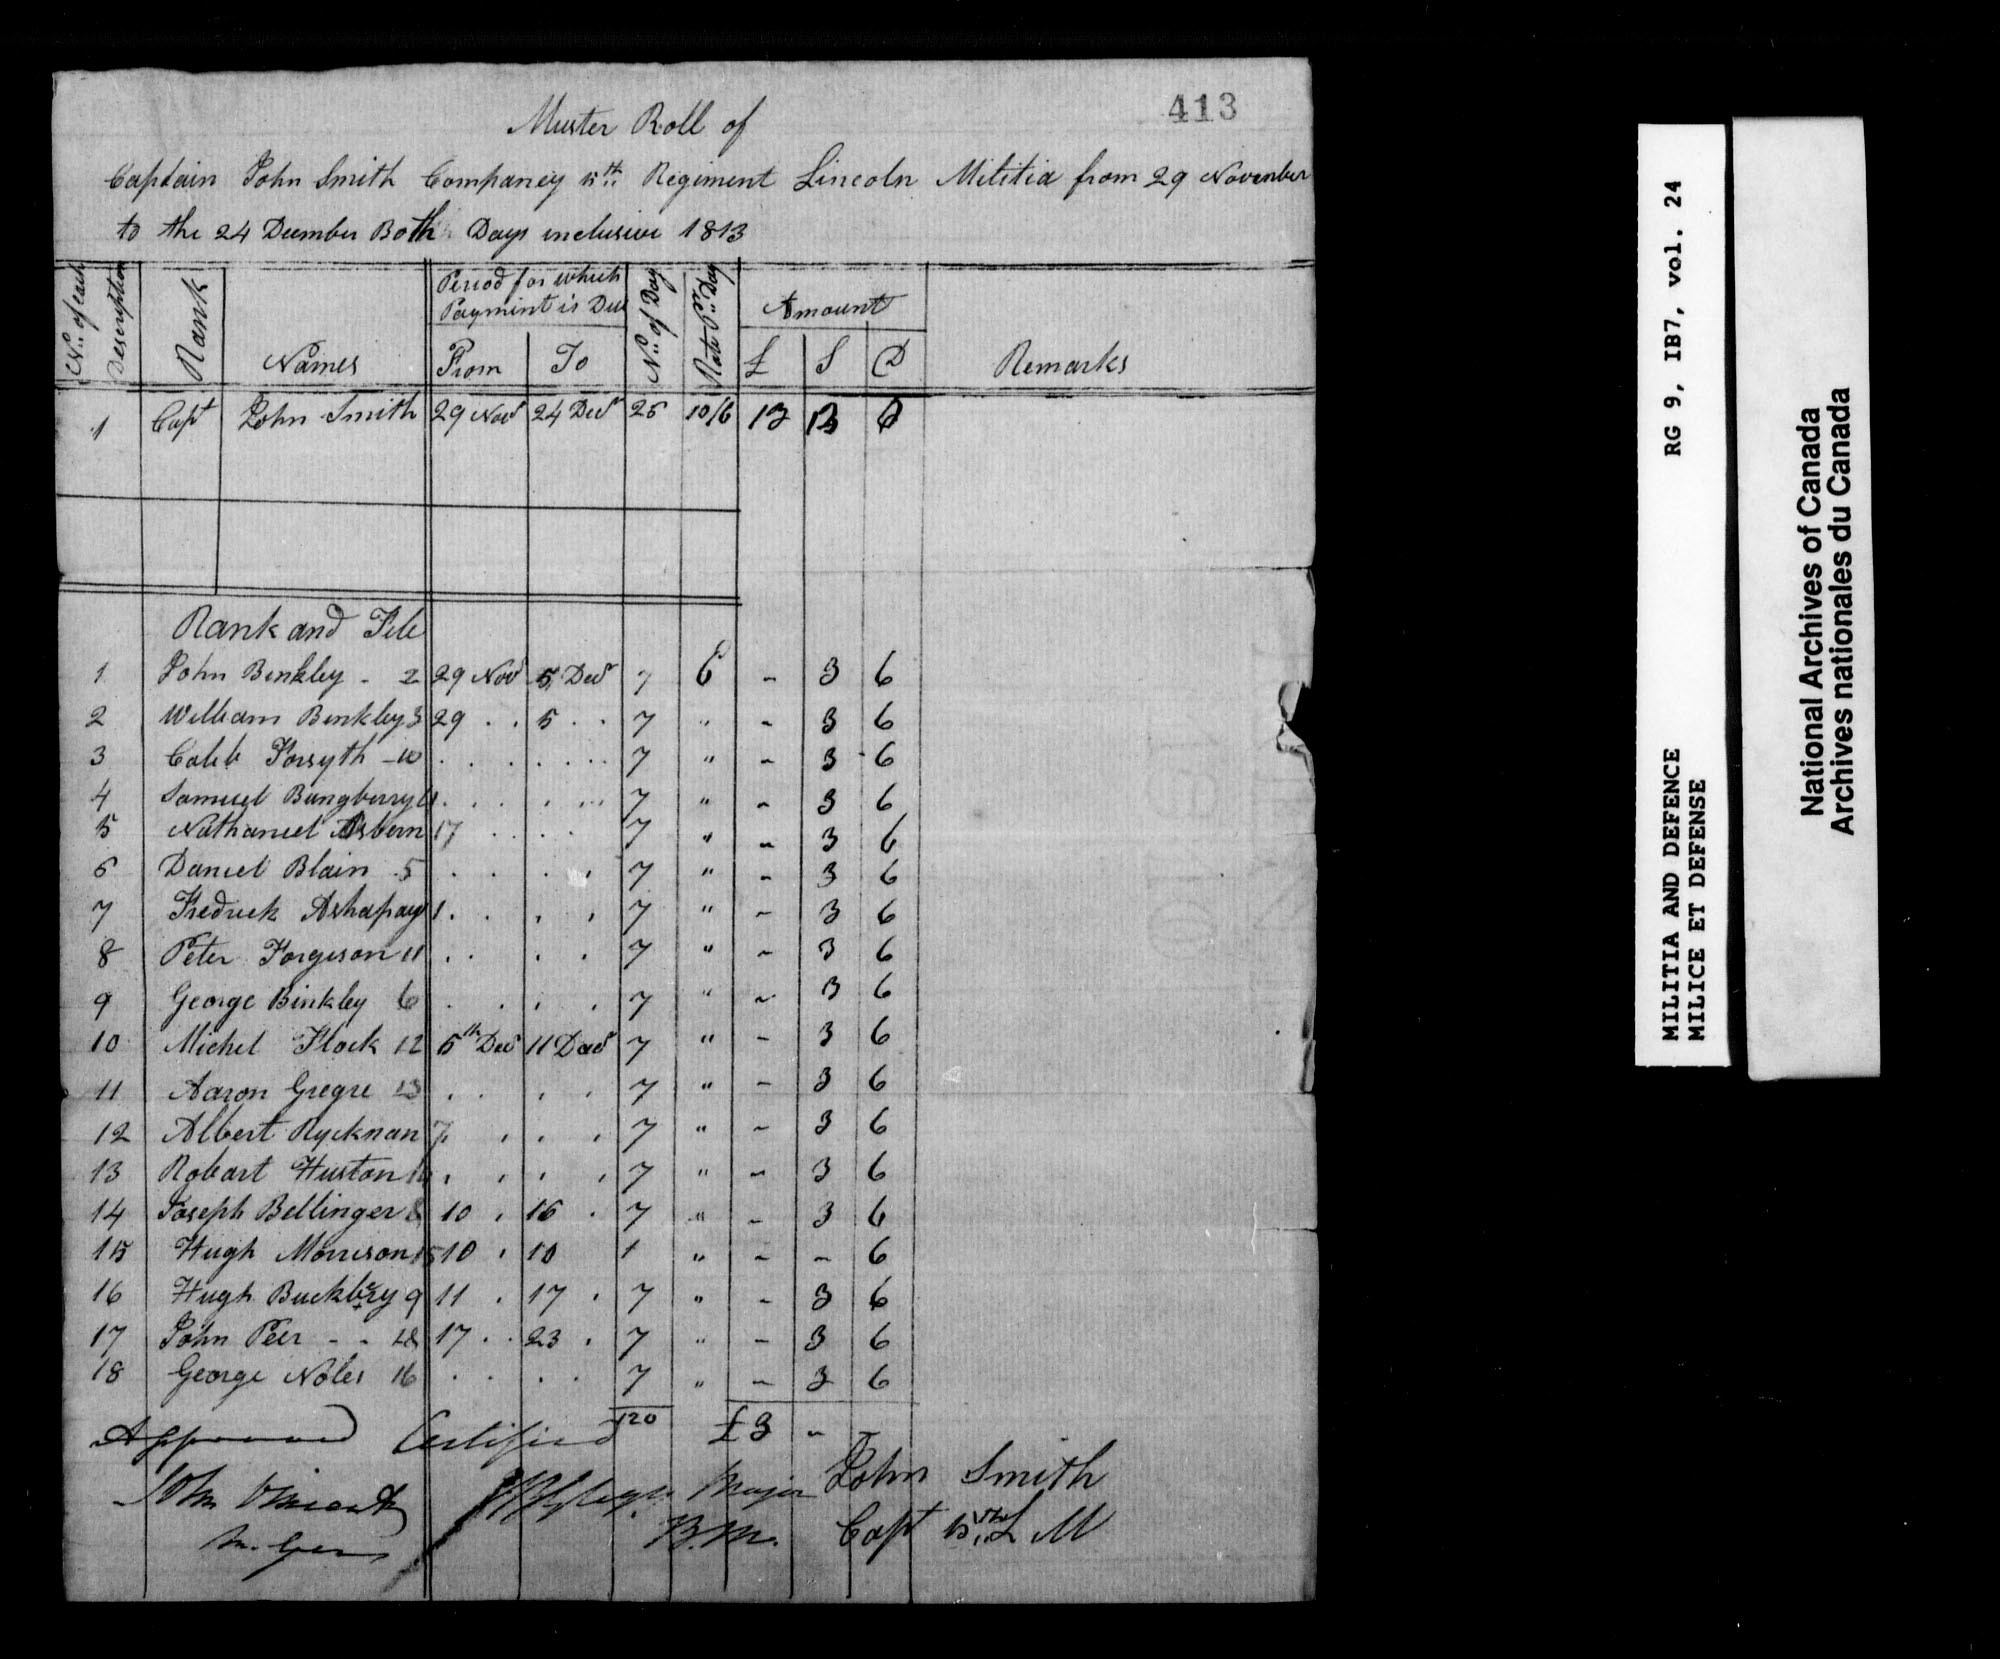 413
Muster Roll of
Captain John Smith Companey 5th Regiment Lincoln Militia from 29 November
to the 24 December Both Days inclusive 1813
No. of each Description | Rank | Names | Period for which Payment is Due From | To | No. of Day | Rate Pr. Day | Amount £ | S | D | Remarks
1 Capt John Smith 29 Novr 24 Decr 26 10/6 13 13 6
Rank and File
1 John Binkley - 2 29 Novr 5 Decr 7 6 - 3 6
2 William Binkley 3 29 . . 5 . . 7 " - 3 6
3 Caleb Forsyth - 10 . . . . . . . 7 " - 3 6
4 Samuel Bungberry 4 . . . . . . . 7 " - 3 6
5 Nathaniel Asbern 17 . . . . 7 " - 3 6
6 Daniel Blain 5 . . . . 7 " - 3 6
7 Fredrick Ashapay 1 . . . . 7 " - 3 6
8 Peter Forgison 11 . . . . 7 " - 3 6
9 George Binkley 6 . . . . 7 " - 3 6
10 Michel Flock 12 5th Decr 11 Decr 7 " - 3 6
11 Aaron Gregre 13 . . . . 7 " - 3 6
12 Albert Rycknan 7 . . . . 7 " - 3 6
13 Robart Huston 14 . . . . 7 " - 3 6
14 Joseph Bellinger 8 10 . 16 . 7 " - 3 6
15 Hugh Morrison 15 10 . 10 1 " - - 6
16 Hugh Buckbery 9 11 . 17 . 7 " - 3 6
17 John Peer - - 18 17 . . 23 . 7 " - 3 6
18 George Noles 16 . . . . 7 " - 3 6
Approved Certified 120 £3 - -
John Vincent Major John Smith
M. Genl B.M. Capt 5th L M
MILITIA AND DEFENCE RG 9, IB7, vol. 24
MILICE ET DEFENSE
National Archives of Canada
Archives nationales du Canada